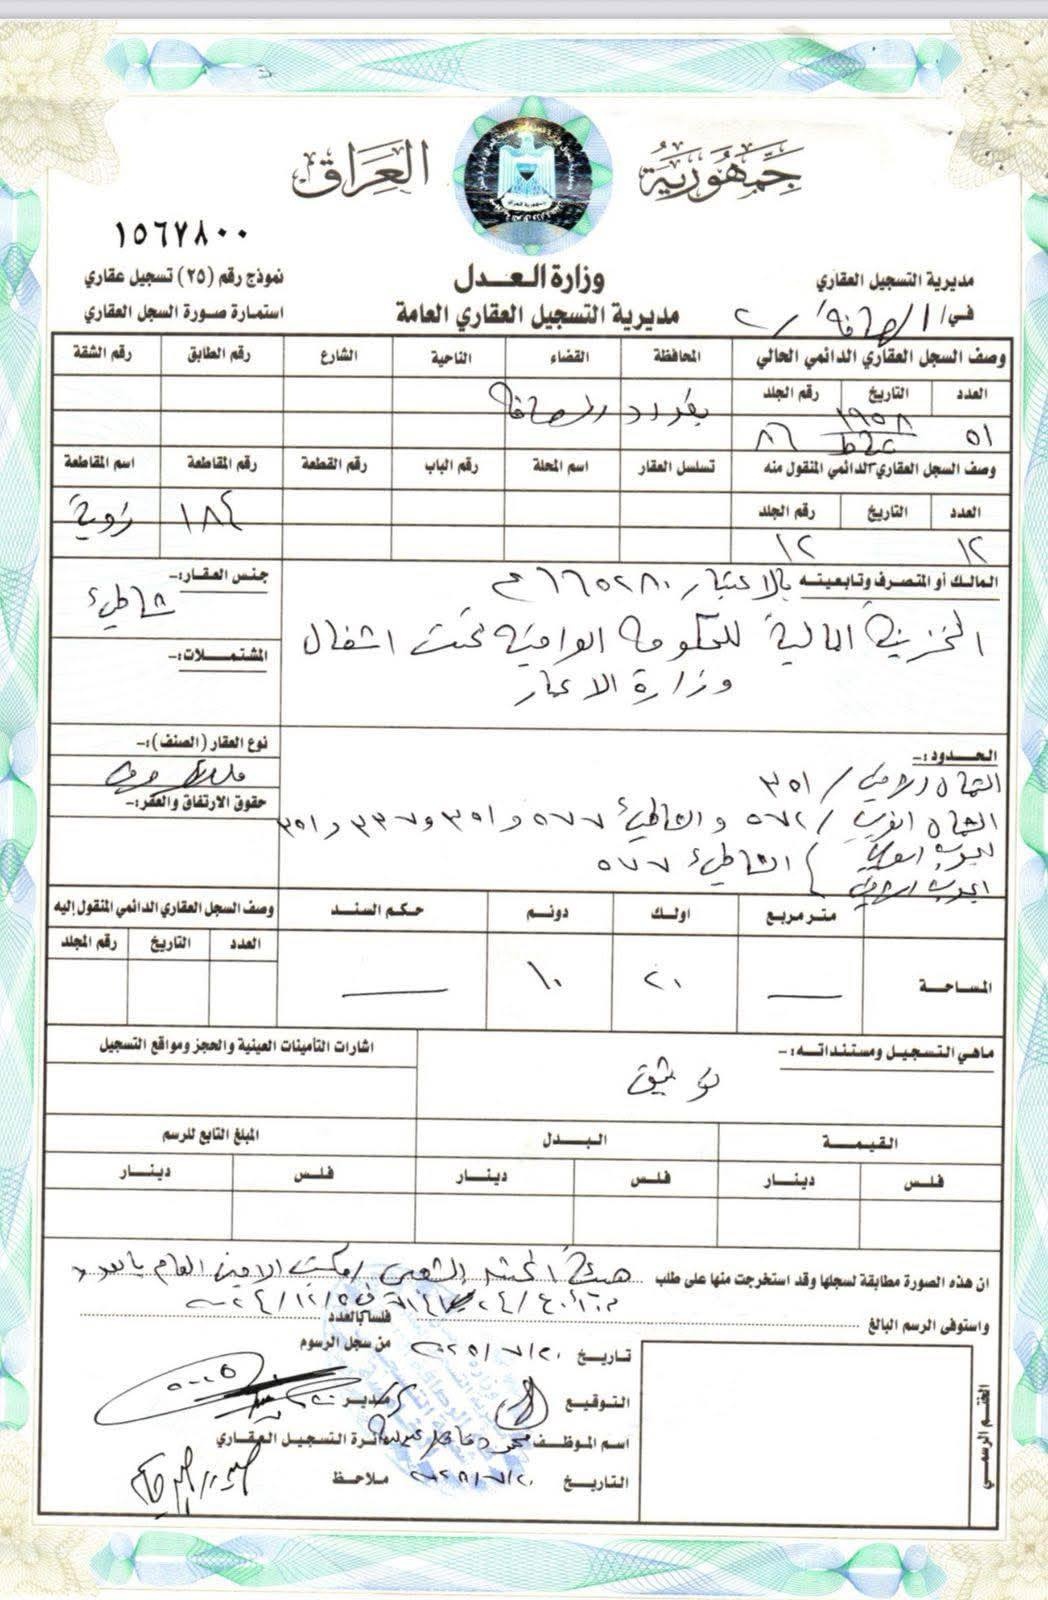 جمهورية العراق
١٥٦٧٨٠٠
وزارة العدل
مديرية التسجيل العقاري العامة
مديرية التسجيل العقاري
في/ الرصافة/ ٢
نموذج رقم (٢٥) تسجيل عقاري
استمارة صورة السجل العقاري
وصف السجل العقاري الدائمي الحالي المحافظة القضاء الناحية الشارع رقم الطابق رقم الشقة
العدد التاريخ رقم الجلد
بغداد الرصافة
٥١ ١٩٥٨ ٨٦
وصف السجل العقاري الدائمي المنقول منه تسلسل العقار اسم المحلة رقم الباب رقم القطعة رقم المقاطعة اسم المقاطعة
العدد التاريخ رقم الجلد
١٨٤ زوية
١٢ ١٢
المالك أو المتصرف وتابعيته بالاعتبار
الخزينة المالية للحكومة العراقية تحت اشغال
وزارة الاعمار
جنس العقار:-
شاطئ
المشتملات:-
نوع العقار (الصنف):-
ملك صرف
حقوق الارتفاق والعقر:-
الحدود:-
الشمال الشرقي / ٣٥١
الشمال الغربي / ٥٧٢ والشاطئ ٥٧٧ و ٣٥١ و ٣٣٧ و ٣٥١
الجنوب الغربي
الجنوب الشرقي
الشاطئ ٥٧٧
متر مربع اولك دونم حكم السند وصف السجل العقاري الدائمي المنقول إليه
العدد التاريخ رقم المجلد
المساحة — ٢٠ ١٠ —
ماهي التسجيل ومستنداته:-
توثيق
اشارات التأمينات العينية والحجز ومواقع التسجيل
القيمة البدل المبلغ التابع للرسم
فلس دينار فلس دينار فلس دينار
ان هذه الصورة مطابقة لسجلها وقد استخرجت منها على طلب هيئة الحشد الشعبي / مكتب الامين العام بالعدد
واستوفى الرسم البالغ فلسا بالعدد
تاريخ ٢٠٢٥/٧/٢٠ من سجل الرسوم
التوقيع
مدير
اسم الموظف محمود فاضل
دائرة التسجيل العقاري
التاريخ ٢٠٢٥/٧/٢٠
ملاحظ
الختم الرسمي